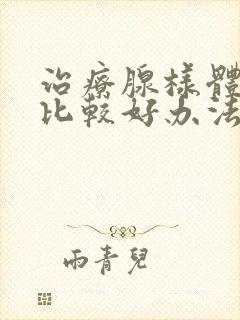 治療腺樣體
比較好办法
雨青兒